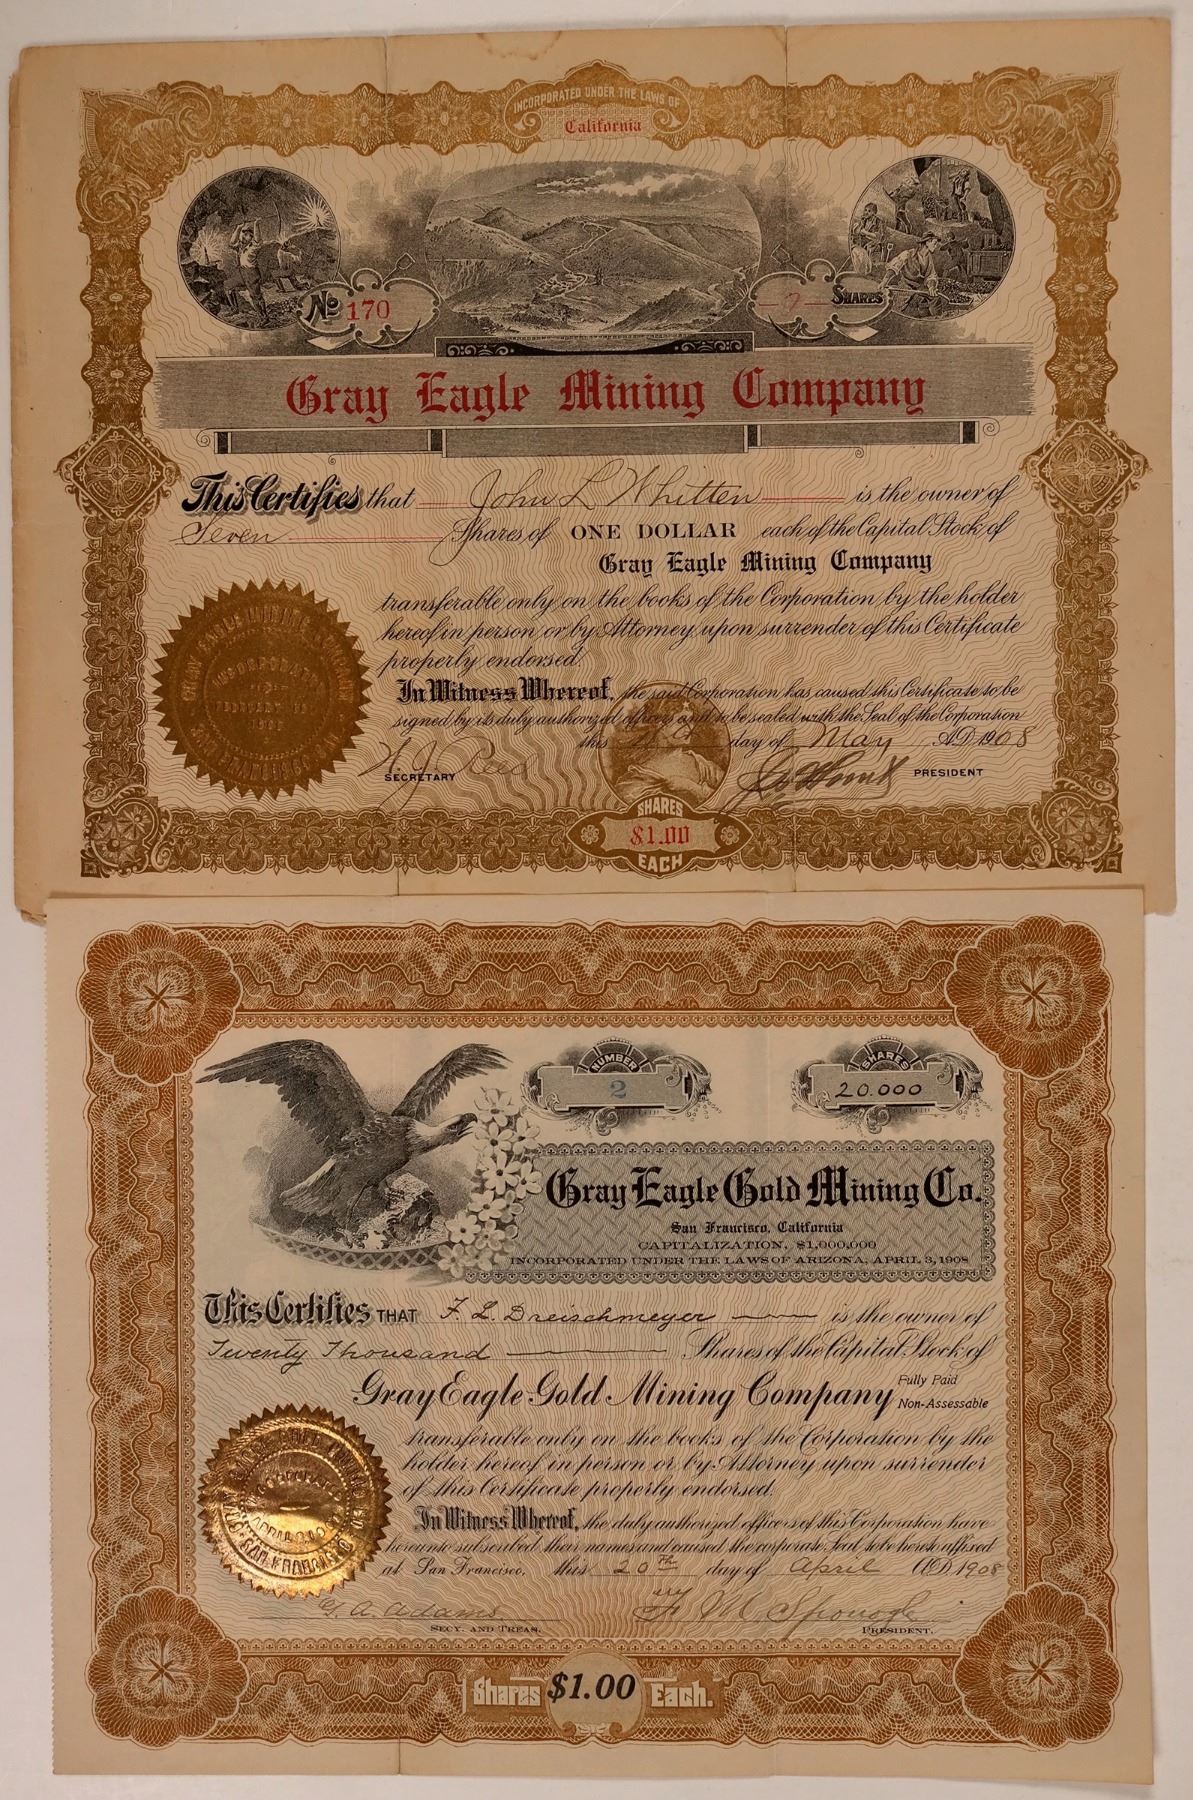 INCORPORATED UNDER THE LAWS OF
California
No 170
7 SHARES
Gray Eagle Mining Company
This Certifies that John L Whitten is the owner of
Seven Shares of ONE DOLLAR each of the Capital Stock of
Gray Eagle Mining Company
transferable only on the books of the Corporation by the holder
hereof in person or by Attorney upon surrender of this Certificate
properly endorsed.
In Witness Whereof, the said Corporation has caused this Certificate to be
signed by its duly authorized officers and to be sealed with the Seal of the Corporation
this day of May A.D. 1908
SECRETARY
PRESIDENT
GRAY EAGLE MINING COMPANY
INCORPORATED
FEBRUARY
SAN FRANCISCO
SHARES
$1.00
EACH
NUMBER
2
SHARES
20.000
Gray Eagle Gold Mining Co.
San Francisco, California
CAPITALIZATION, $1,000,000
INCORPORATED UNDER THE LAWS OF ARIZONA, APRIL 3, 1908
This Certifies THAT F. L. Dreischmeyer is the owner of
Twenty Thousand Shares of the Capital Stock of
Gray Eagle Gold Mining Company Fully Paid
Non-Assessable
transferable only on the books of the Corporation by the
holder hereof in person or by Attorney upon surrender
of this Certificate properly endorsed.
In Witness Whereof, the duly authorized officers of this Corporation have
hereunto subscribed their names and caused the corporate Seal to be hereto affixed
at San Francisco, this 20th day of April A.D. 1908
G. A. Adams
SECY. AND TREAS.
F. M. Sponogle
PRESIDENT.
SAN FRANCISCO
Shares $1.00 Each.